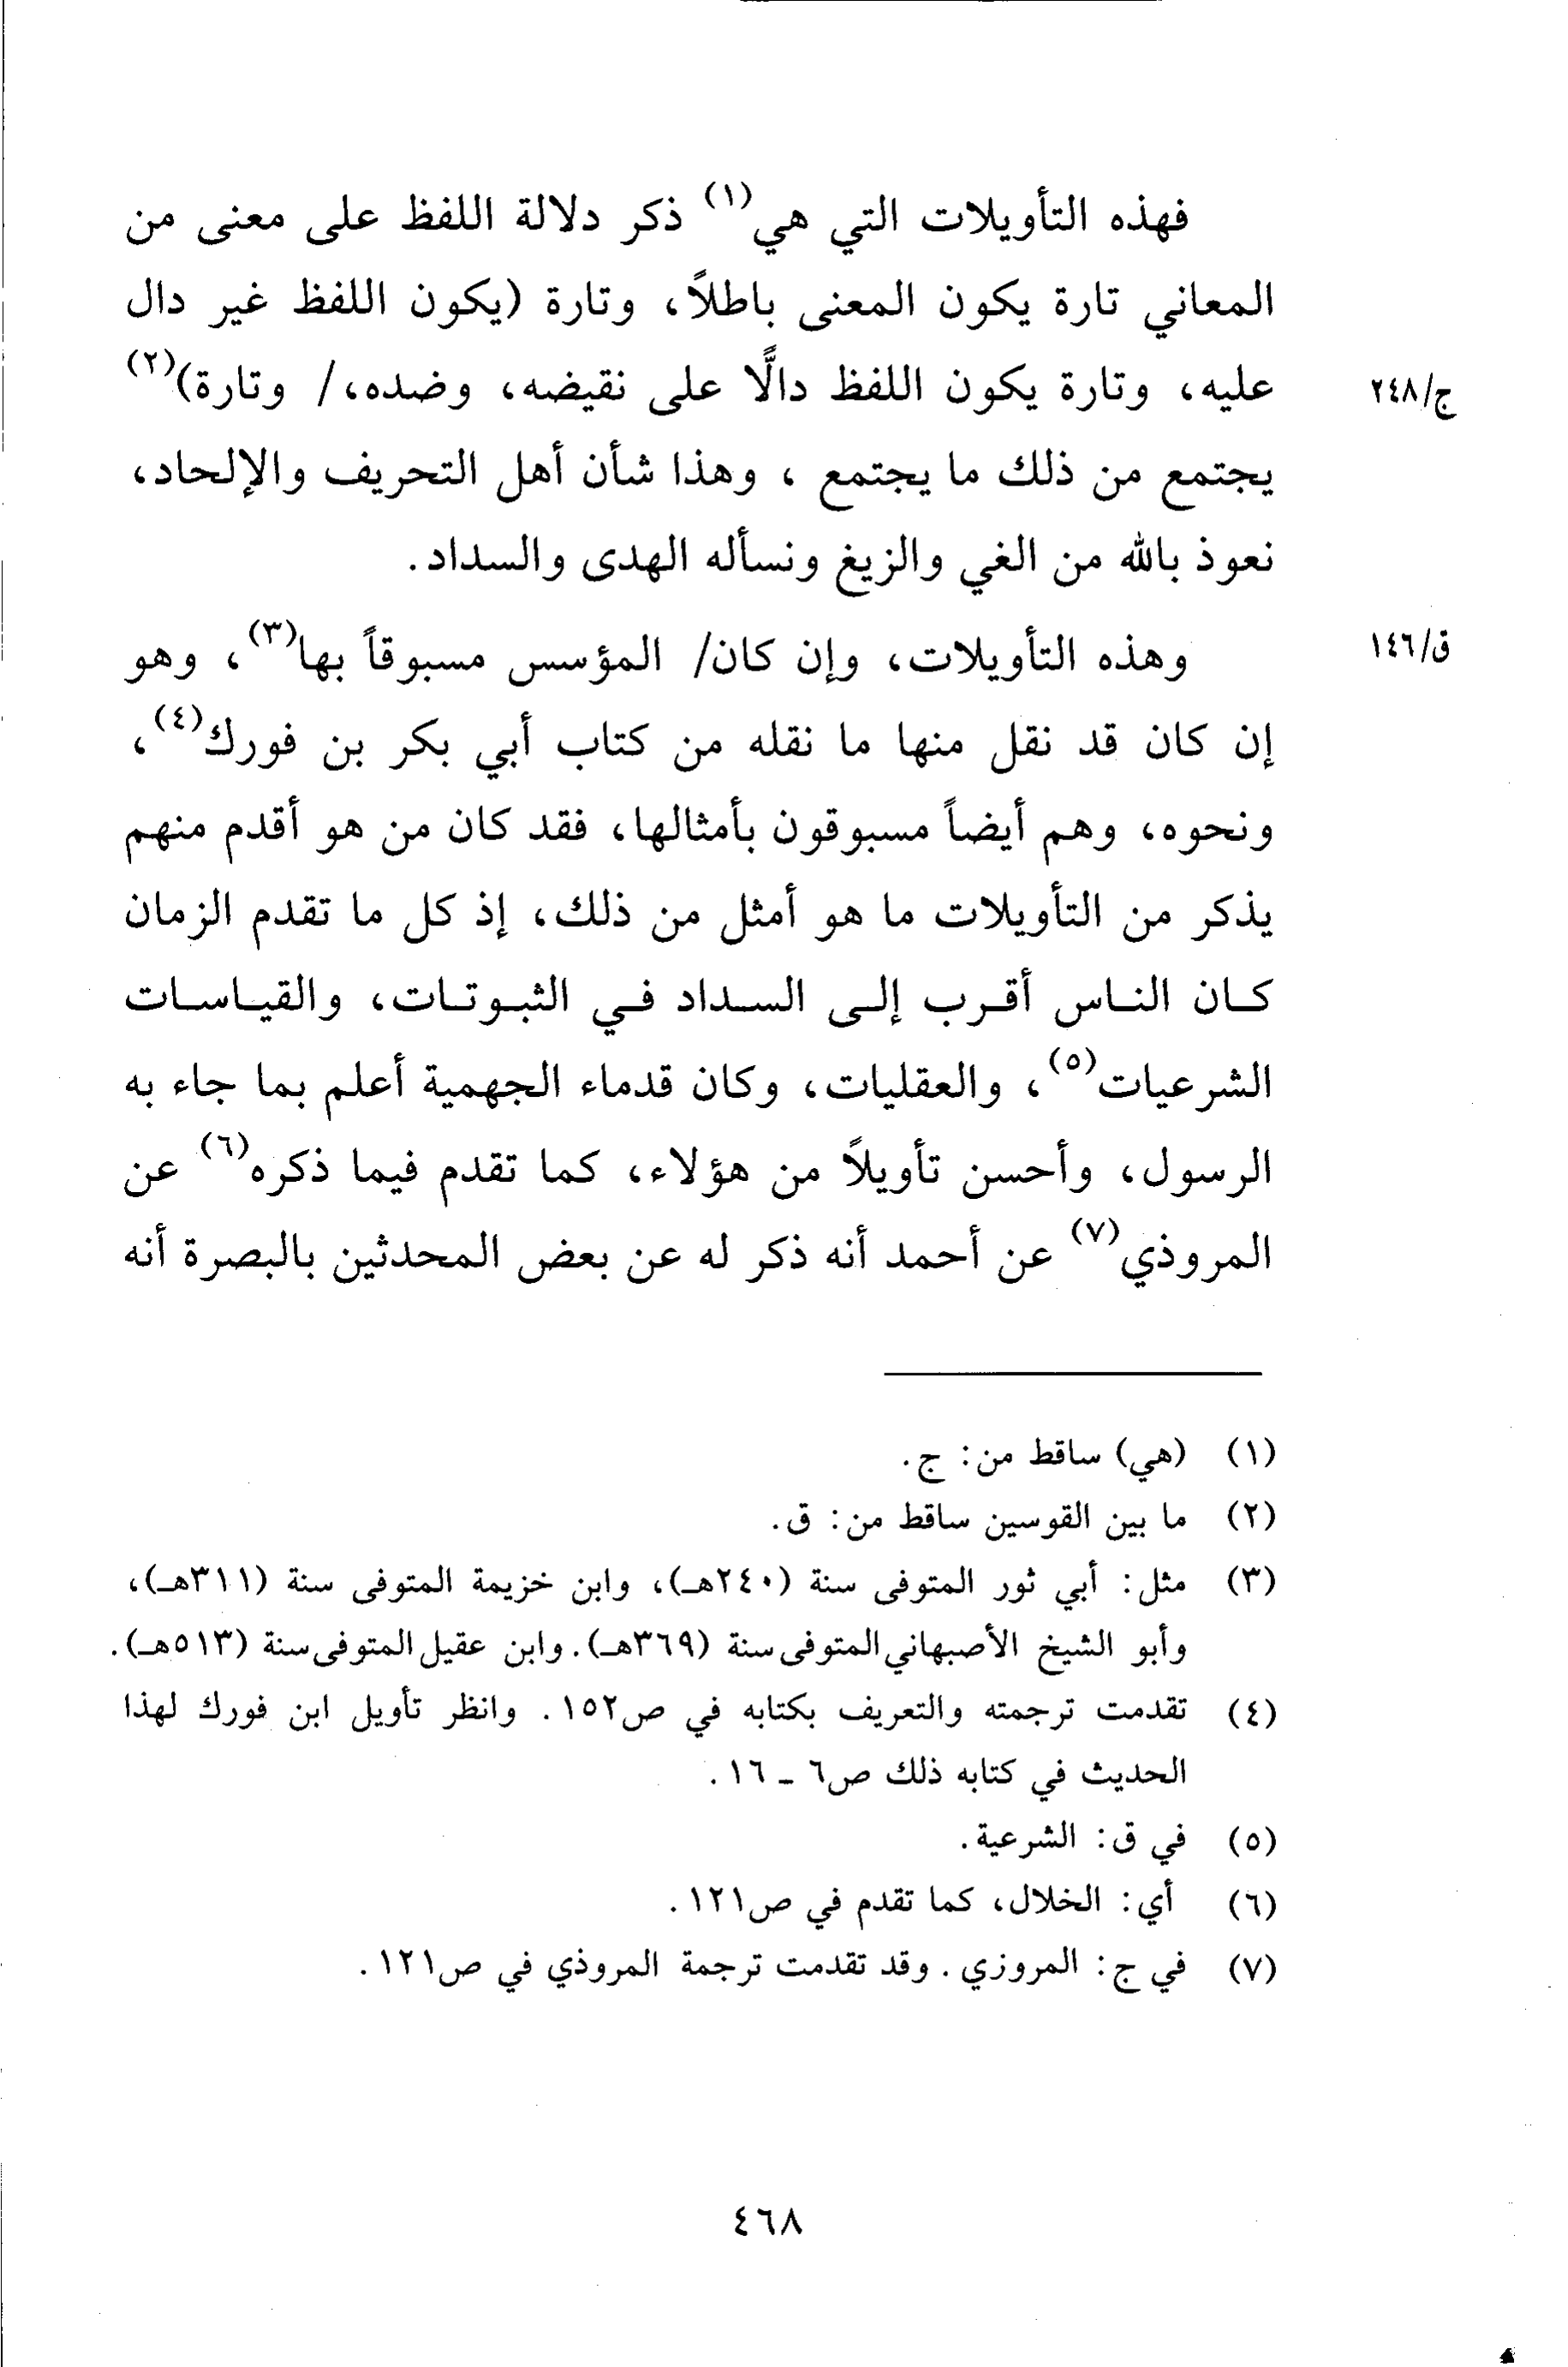 فهذه التأويلات التي هي(١) ذكر دلالة اللفظ على معنى من
المعاني تارة يكون المعنى باطلاً، وتارة (يكون اللفظ غير دال
عليه، وتارة يكون اللفظ دالًّا على نقيضه، وضده،/ وتارة)(٢)
ج/٢٤٨
يجتمع من ذلك ما يجتمع ، وهذا شأن أهل التحريف والإلحاد،
نعوذ بالله من الغي والزيغ ونسأله الهدى والسداد.
وهذه التأويلات، وإن كان/ المؤسس مسبوقاً بها(٣)، وهو
ق/١٤٦
إن كان قد نقل منها ما نقله من كتاب أبي بكر بن فورك(٤)،
ونحوه، وهم أيضاً مسبوقون بأمثالها، فقد كان من هو أقدم منهم
يذكر من التأويلات ما هو أمثل من ذلك، إذ كل ما تقدم الزمان
كان الناس أقرب إلى السداد في الثبوتات، والقياسات
الشرعيات(٥)، والعقليات، وكان قدماء الجهمية أعلم بما جاء به
الرسول، وأحسن تأويلاً من هؤلاء، كما تقدم فيما ذكره(٦) عن
المروذي(٧) عن أحمد أنه ذكر له عن بعض المحدثين بالبصرة أنه
(١) (هي) ساقط من: ج.
(٢) ما بين القوسين ساقط من: ق.
(٣) مثل: أبي ثور المتوفى سنة (٢٤٠هـ)، وابن خزيمة المتوفى سنة (٣١١هـ)،
وأبو الشيخ الأصبهاني المتوفى سنة (٣٦٩هـ). وابن عقيل المتوفى سنة (٥١٣هـ).
(٤) تقدمت ترجمته والتعريف بكتابه في ص١٥٢. وانظر تأويل ابن فورك لهذا
الحديث في كتابه ذلك ص٦ - ١٦.
(٥) في ق: الشرعية.
(٦) أي: الخلال، كما تقدم في ص١٢١.
(٧) في ج: المروزي. وقد تقدمت ترجمة المروذي في ص١٢١.
٤٦٨